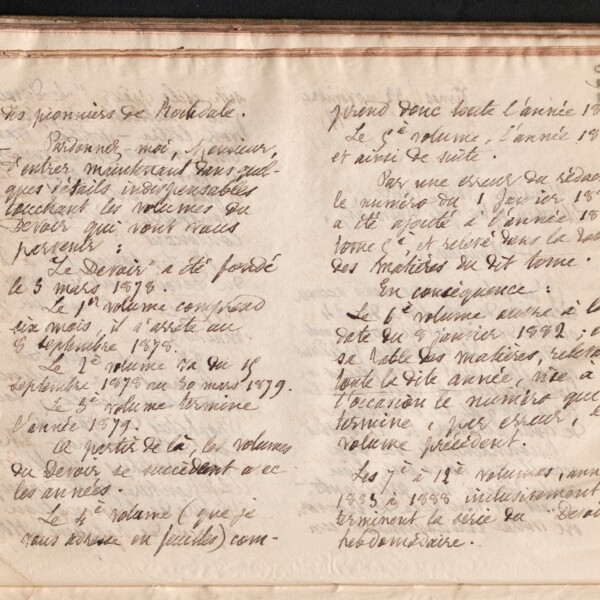 des pionniers de Rochdale.
Pardonnez-moi, Monsieur,
d'entrer maintenant dans quel-
ques détails indispensables
touchant les volumes du
Devoir qui vont vous
parvenir :
"Le Devoir" a été fondé
le 3 mars 1878.
Le 1er volume comprend
six mois, il s'arrête au
8 septembre 1878.
Le 2e volume va du 15
septembre 1878 au 30 mars 1879.
Le 3e volume termine
l'année 1879.
A partir de là, les volumes
du Devoir se succèdent avec
les années.
Le 4e volume (que je
vous adresse en feuilles) com-
prend donc toute l'année 18
Le 5e volume, l'année 18
et ainsi de suite.
Par une erreur du rédac
le numéro du 1 Janvier 18
a été ajouté à l'année 18
tome 5e, et relevé dans la
des matières du dit tome.
En conséquence :
Le 6e volume ouvre à l
date du 8 janvier 1882 ;
sa table des matières,
toute la dite année, vise à
l'occasion le numéro qui
termine, par erreur,
volume précédent.
Les 7e à 12e volumes, ann
1883 à 1888 inclusivement
terminent la série du "Devoi
hebdomadaire.